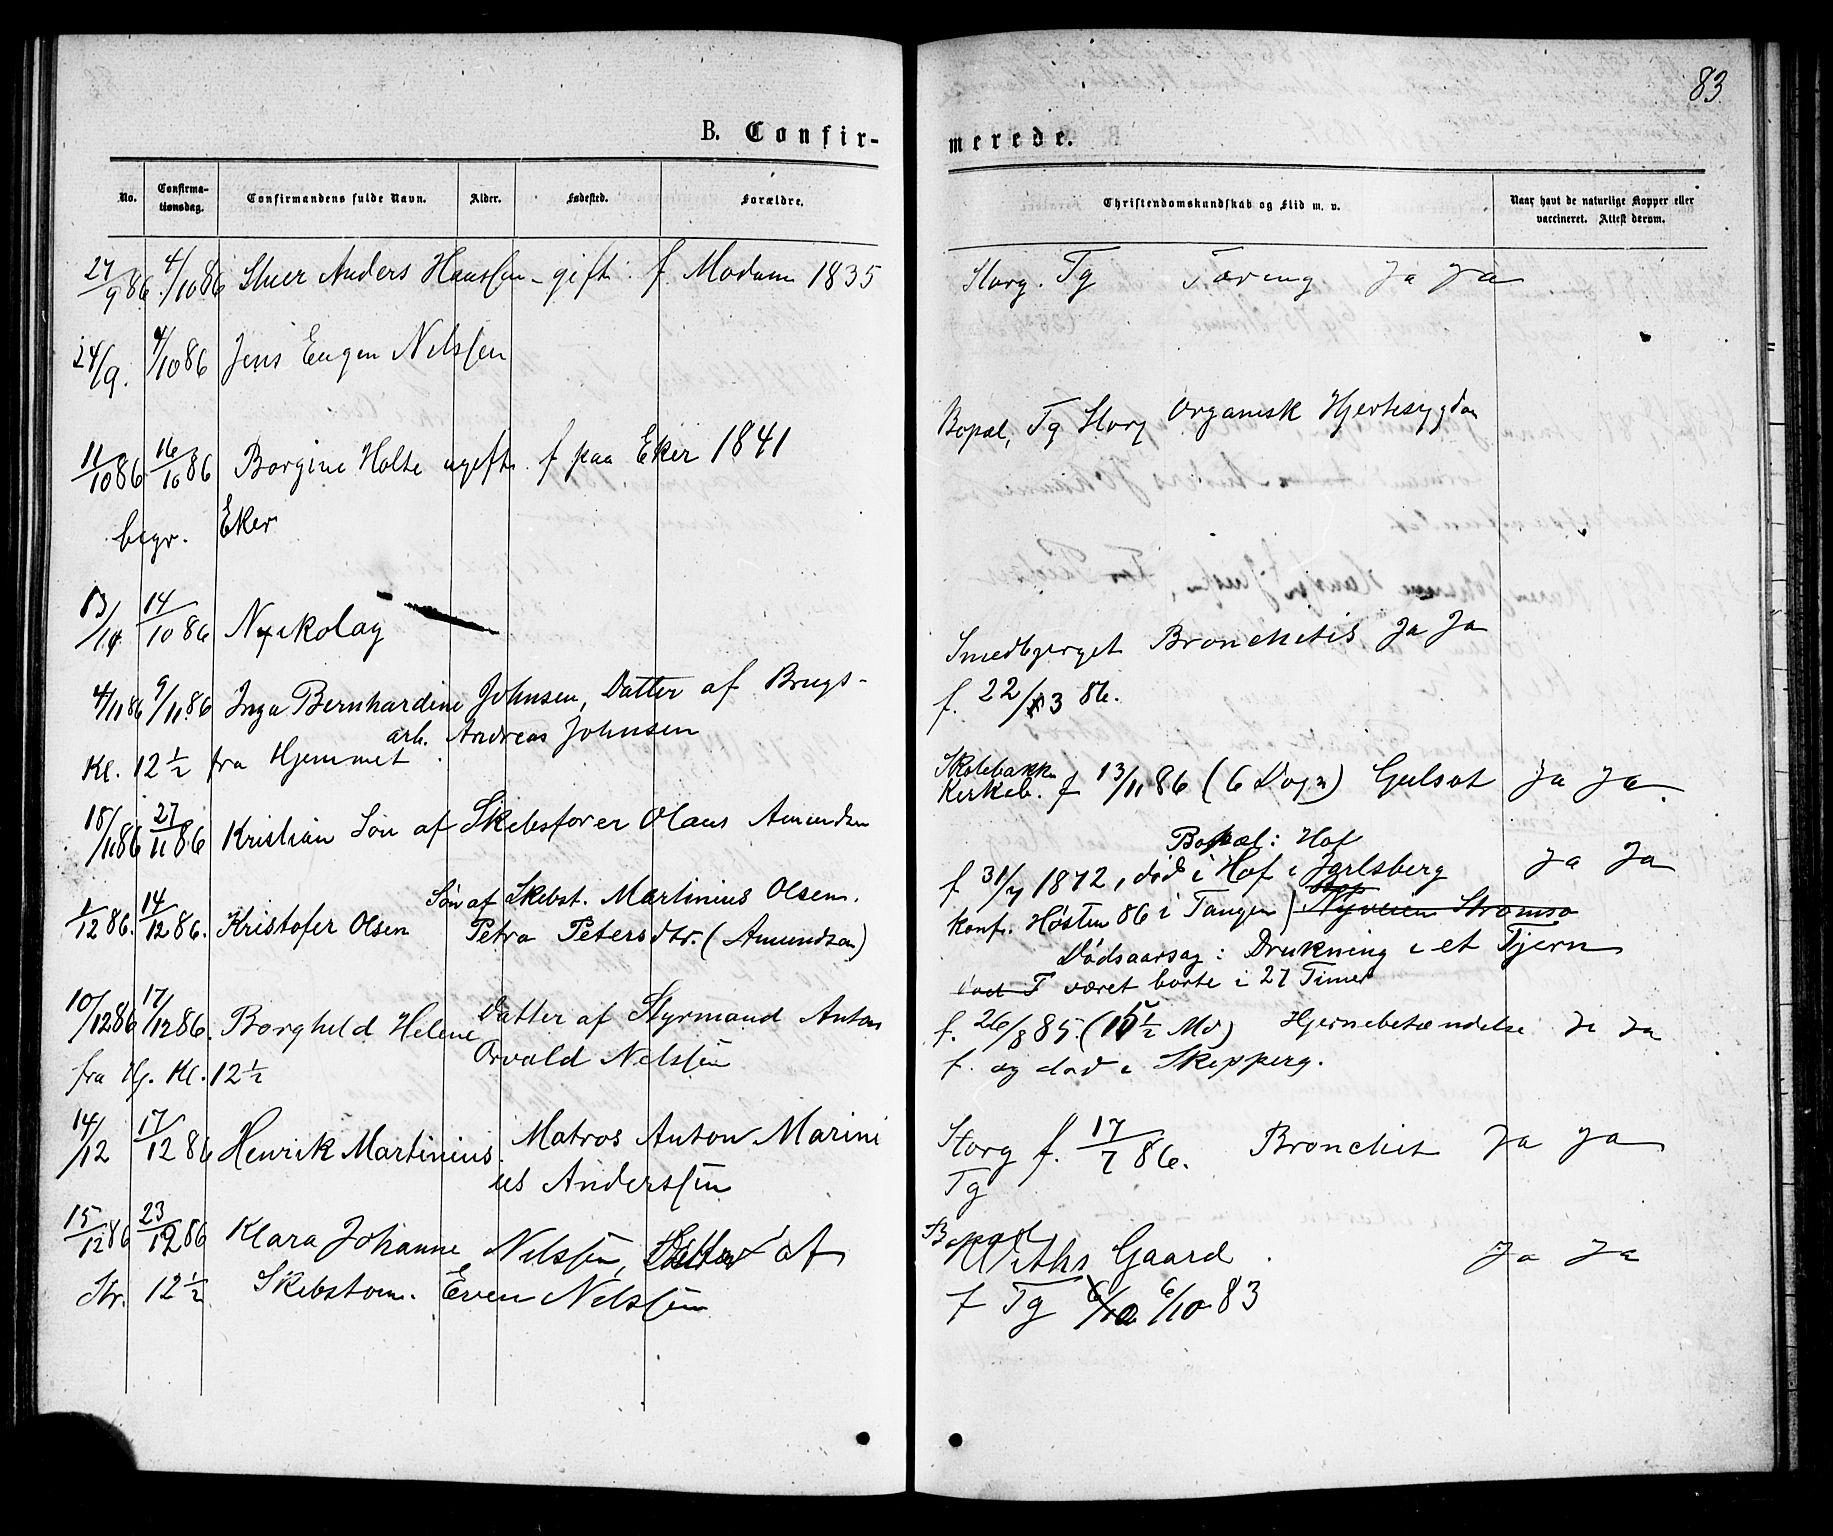 83
B. Confir-
merede.
No.
Confirma-
tionsdag.
Confirmandens fulde Navn.
Alder.
Fødested.
Forældre.
Christendomskundskab og Flid m. v.
Naar havt de naturlige Kopper eller
vaccineret. Attest derom.
27/9 86 4/10 86 Anders Hanssen gift f. Modum 1835
Storg. Tg Tæring Ja Ja
24/9. 4/10 86 Jens Eugen Nilssen
11/10 86 16/10 86 Borgine Holte ugift. f paa Eker 1841
Bopæl, Tg Storg Organisk Hjertesygdom
begr. Eker
13/10 14/10 86 Nikolay
Smedbjerget Bronchitis Ja Ja
4/11 86 9/11 86 Inga Bernhardine Johnsen, Datter af Brugs-
arb. Andreas Johnsen
f. 22/3 86.
Kl. 12 ½ fra Hjemmet
Skolebakken
Kirkeb. f 13/11 86 (6 Dogn) Gulsot Ja Ja.
18/11 86 27/11 86 Kristian Søn af Skibsfører Olaus Amundsen
Bopæl: Hof
f 31/7 1872, død i Hof i Jarlsberg Ja Ja
1/12 86. 14/12 86. Kristofer Olsen Søn af Skibst. Martinius Olsen.
Petra Petersdtr. (Amundsen)
konf. Høsten 86 i Tangen) Nyveien Strømsø
Dødsaarsag: Drukning i et Tjern
været borte i 27 Timer
10/12 86 17/12 86. Borghild Helene Datter af Styrmand Anton
Orvald Nilssen
f. 26/8 85. (15 ½ Md) Hjernebetændelse Ja Ja
f. og død i Skipperg.
fra Hj. Kl. 12 ½
14/12 17/12 86 Henrik Martinius. Matros Anton Marini
us Anderssen
Storg f. 17/7 86. Bronchit Ja Ja
Tg
15/12 86 23/12 86 Klara Johanne Nilssen, Datter af
Bopæl
Withs Gaard. Ja Ja
Str. 12 ½ Skibstøm. Even Nilssen
f Tg 6/10 6/10 83